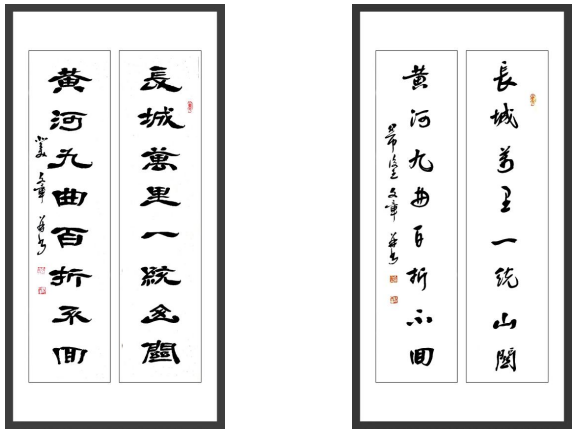 長城萬里一統山關
黃河九曲百折不回
文章
長城萬里一統山關
黃河九曲百折不回
文章